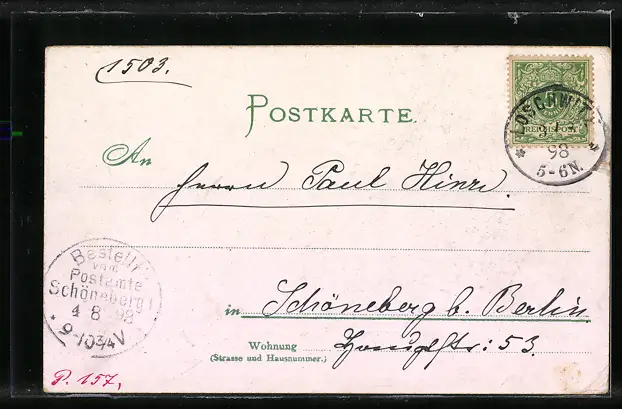 1503.
POSTKARTE.
LOSCHWITZ
REICHSPOST
98
5-6N.
An
Herrn Paul Hinze.
Bestellt
vom
Postamte
Schöneberg 1
4 8 98
9-10¾V
in Schöneberg b. Berlin.
Wohnung
(Strasse und Hausnummer.)
Hauptstr: 53.
P. 157,